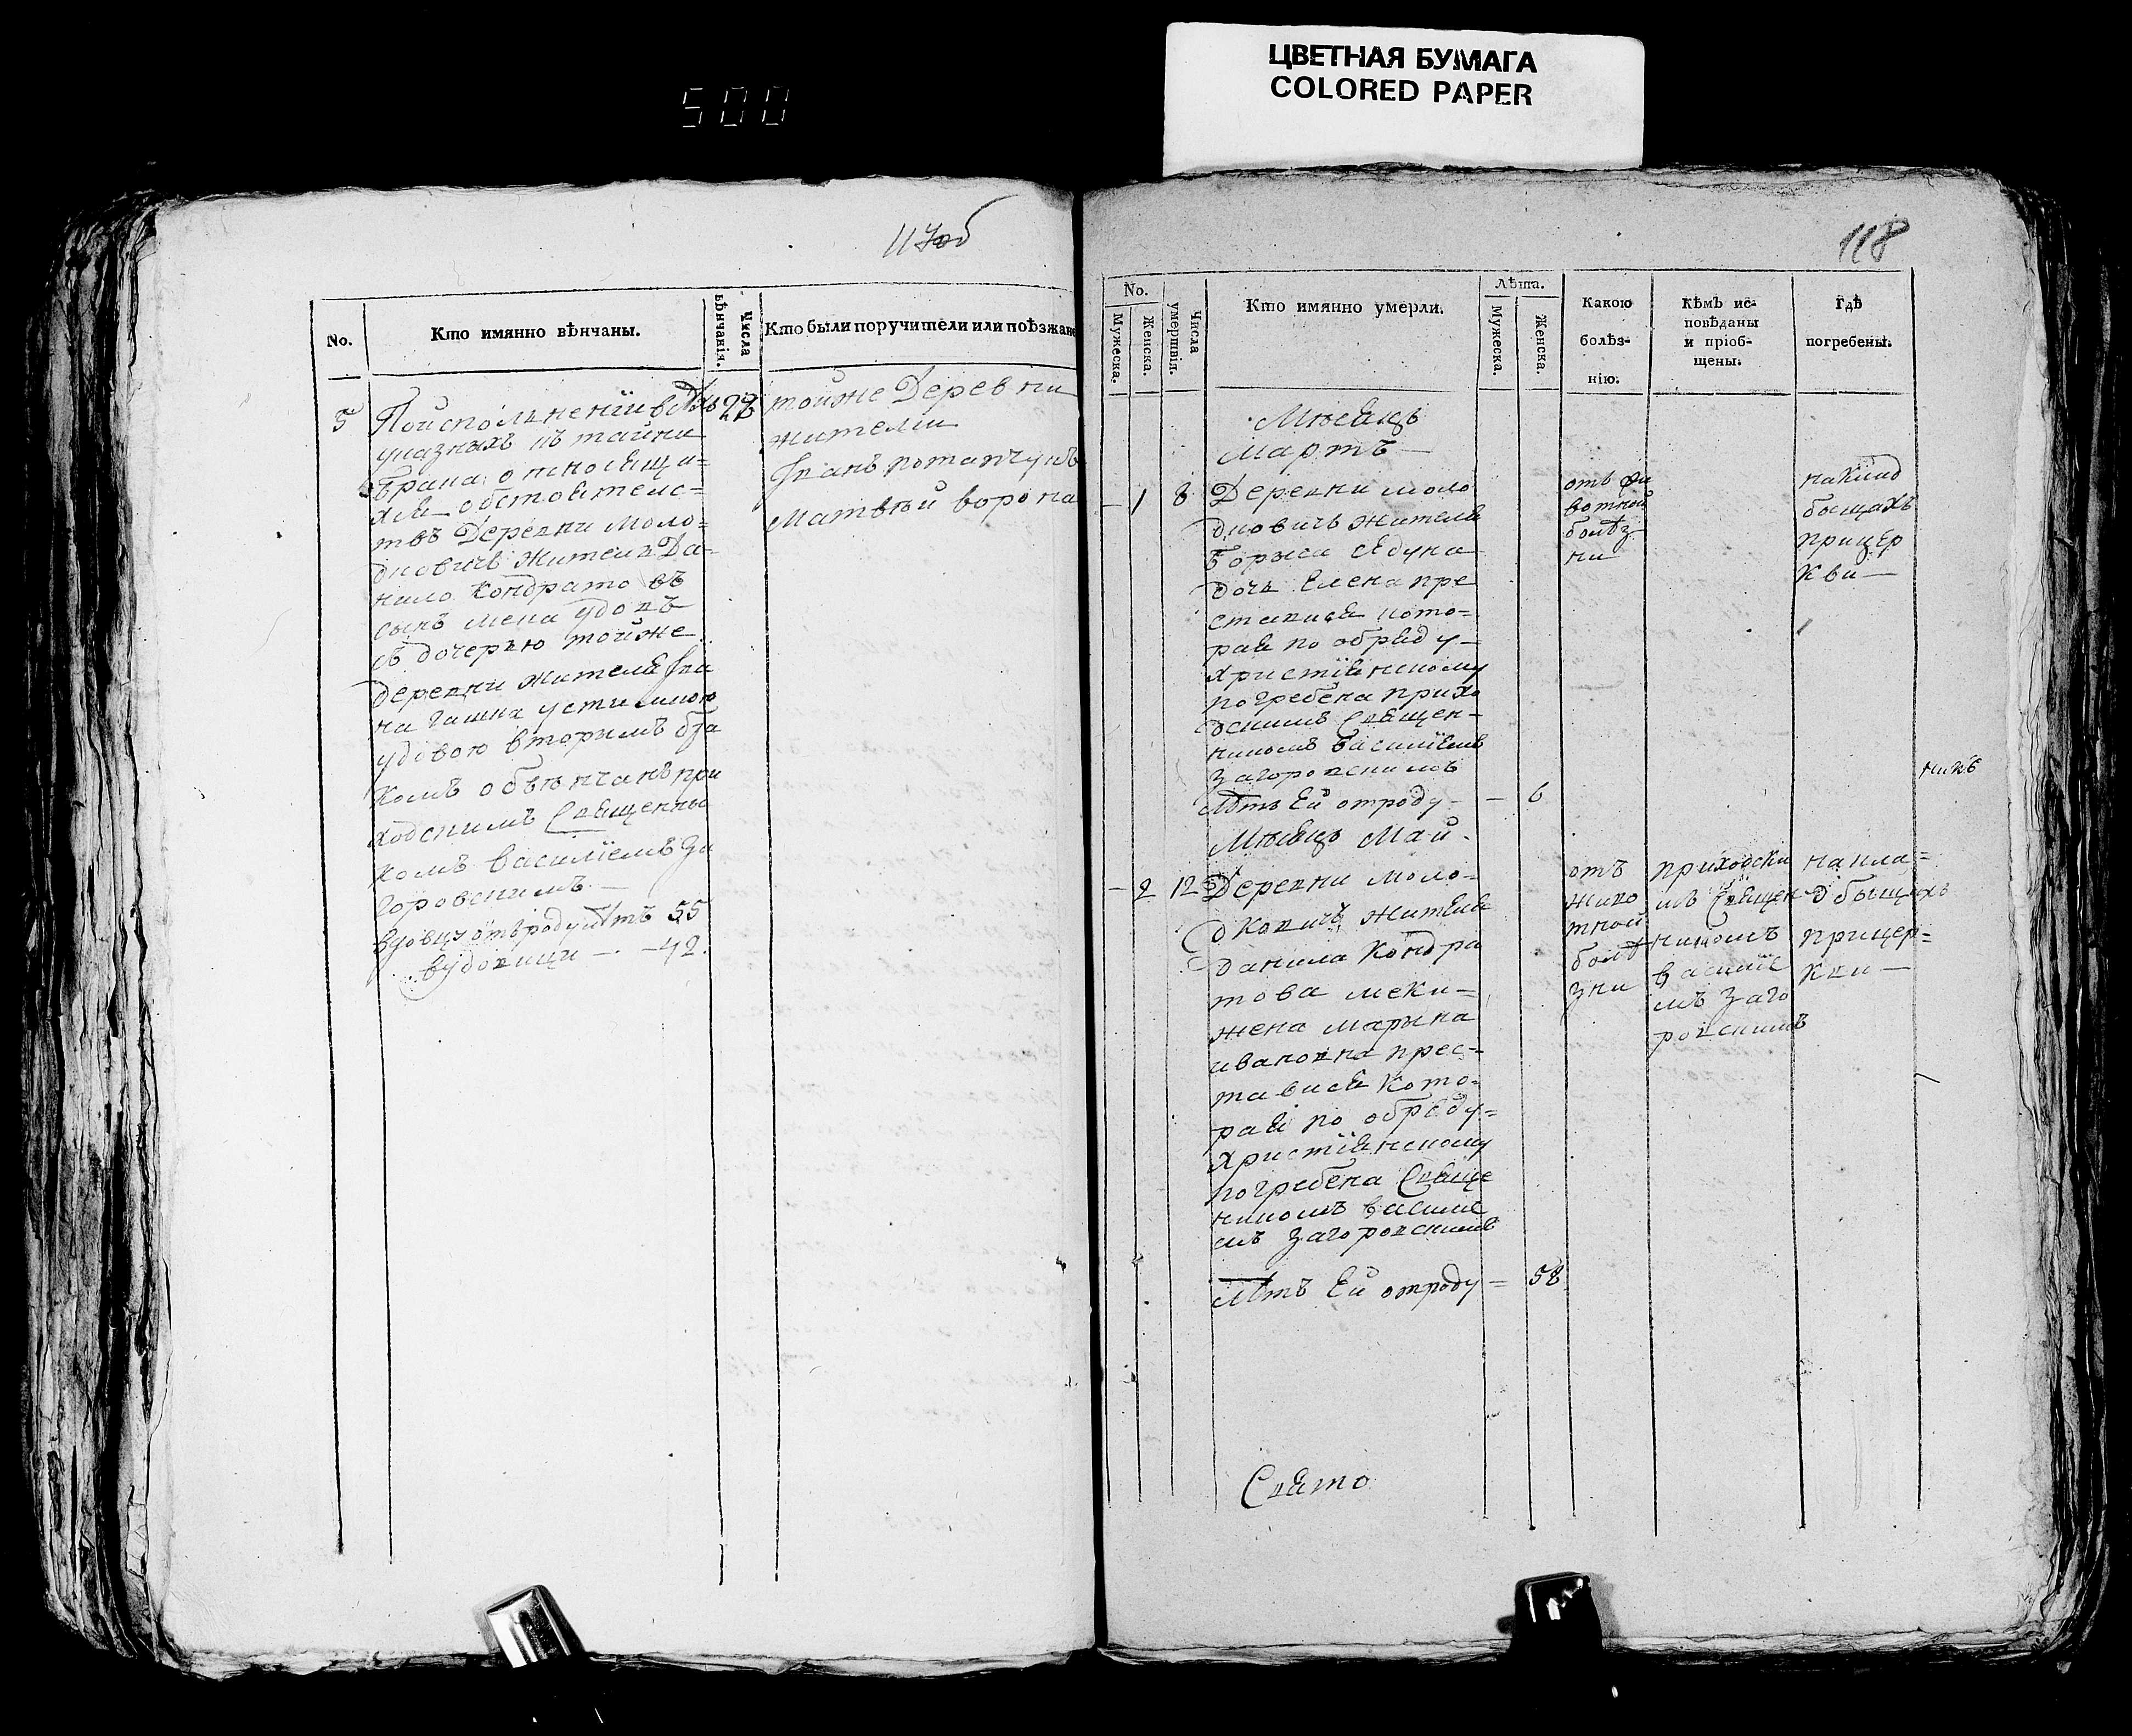 ЦВЕТНАЯ БУМАГА
COLORED PAPER
500
117об
No.
Кто имянно вѣнчаны.
Числа вѣнчанія.
Кто были поручители или поѣзжане
5
По исполненїи всѣхъ
22
указныхъ къ тайни
брака относяща=
хся обстоятелс=
твъ Деревни Моло=
дковичъ жителя Да=
нило Кондратовъ
сынъ мена удовъ
съ дочерью тойже
деревни жителя Ива
на Гашка устимиею
удовою вторымъ бра
комъ обвѣнчанъ при
ходскимъ Священни
комъ Василїемъ За
горовскимъ —
вдовцу отъ роду лѣтъ 55
вудовици — — 42.
тойже Деревни
жители
Иванъ потапчукъ
Матвѣй ворона
118
No.
Мужеска.
Женска.
Числа умертвія.
Кто имянно умерли.
Лѣта.
Мужеска.
Женска.
Какою
болѣз-
нію.
Кѣмъ ис-
повѣданы
и пріоб-
щены.
Гдѣ
погребены.
Мѣсяцъ
мартъ —
— 1 8
Деревни моло
дковичъ жителя
Борыса
дочь Елена пре
ставися кото=
рая по обряду —
христїянскому
погребена прихо
дскимъ Священ=
никомъ Василїемъ
Загоровскимъ
лѣтъ Ей отроду — — 6
отъ жи
вотной
болѣз
ни
на клад
быщахъ
при цер
кви —
никъ
Мѣсяцъ Май.
— 2 12
Деревни моло=
дковичъ жителя
данила Кондра
това меки=
жена марына
ивановна прес=
тавися кото=
рая по обряду=
христїянскому
погребена Свяще
никомъ Василїе
мъ Загоровскимъ
лѣтъ Ей отроду = 58
отъ
живо
тной
болѣ
зни
приходски
мъ Священ
никомъ
Василїе
мъ Заго
ровскимъ
на кла=
дбыщахъ
при цер=
кви —
Свято